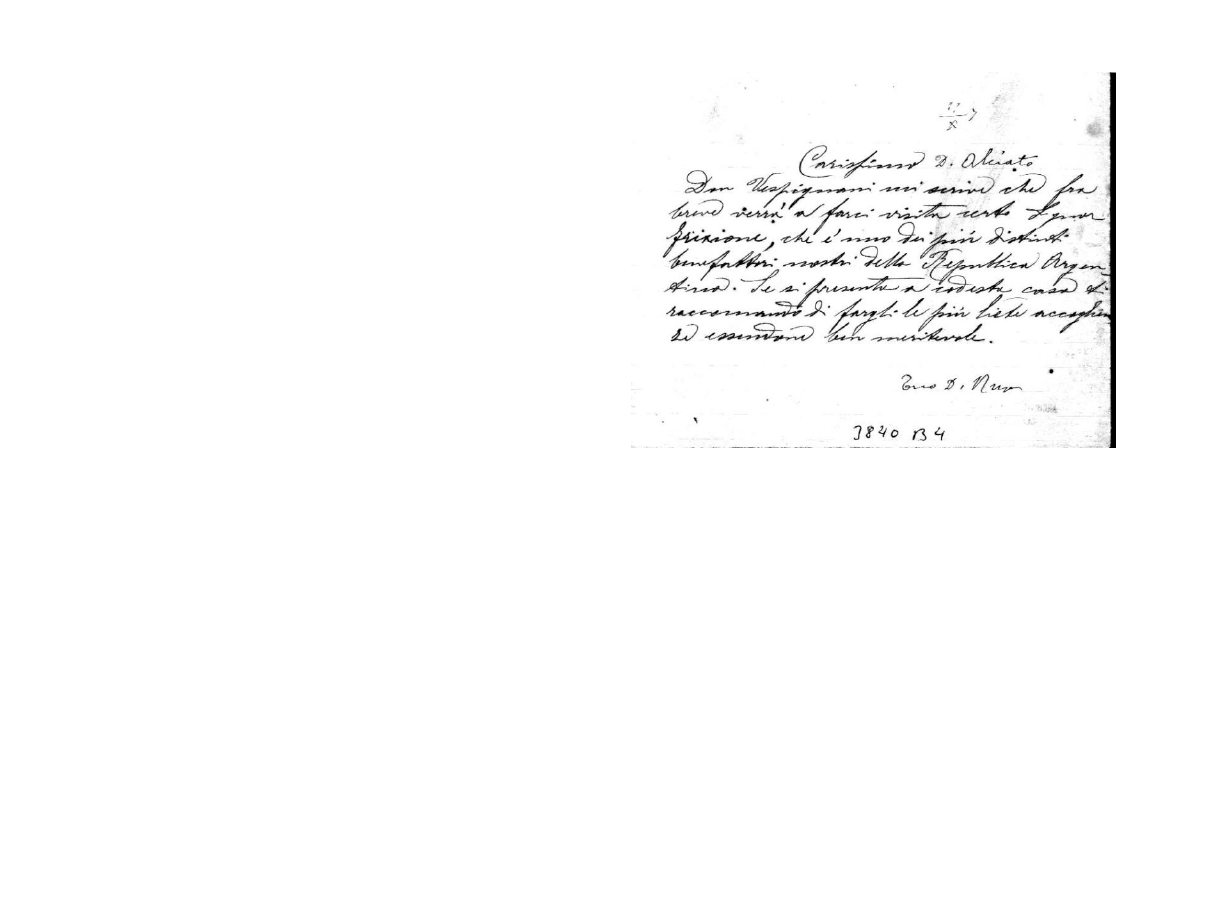 Carissimo D. Alciato
Don Vespignani mi scrive che fra
breve verrà a farci visita certo Signor
Frixione, che è uno dei più distinti
benefattori nostri della Repubblica Argen_
tina. Se si presenta a codesta casa ti
raccomando di fargli le più liete accoglien
ze essendone ben meritevole.
Tuo D. Rua
3840 B4